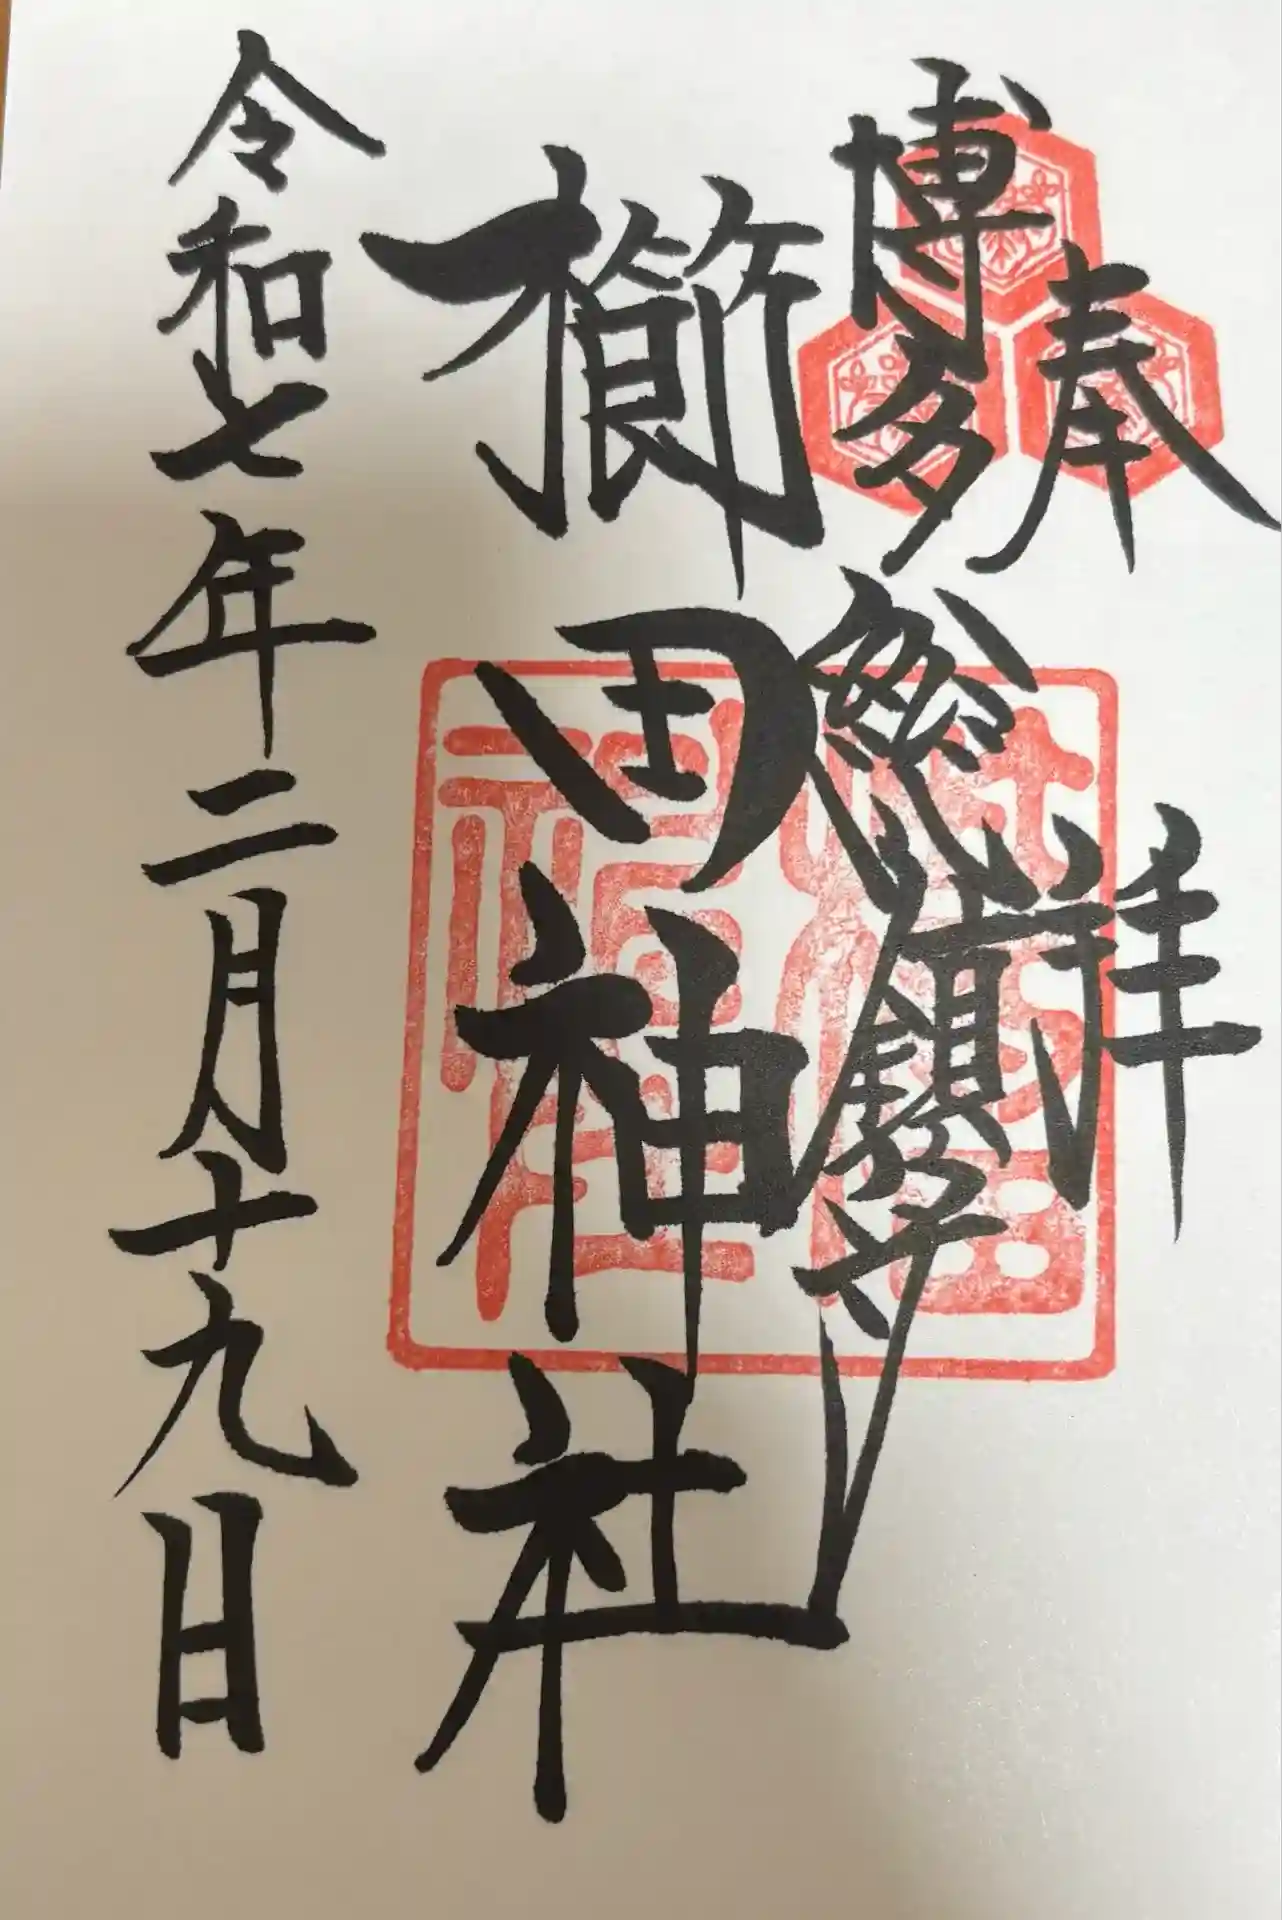 奉拝
博多総鎮守
櫛田神社
令和七年二月十九日
櫛田
神社